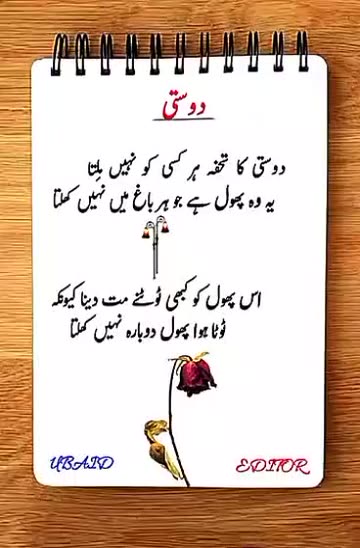 دوستی
دوستی کا تحفہ ہر کسی کو نہیں مِلتا
یہ وہ پھول ہے جو ہر باغ میں نہیں کھلتا
اس پھول کو کبھی ٹوٹنے مت دینا کیونکہ
ٹوٹا ہوا پھول دوبارہ نہیں کھلتا
UBAID EDITOR